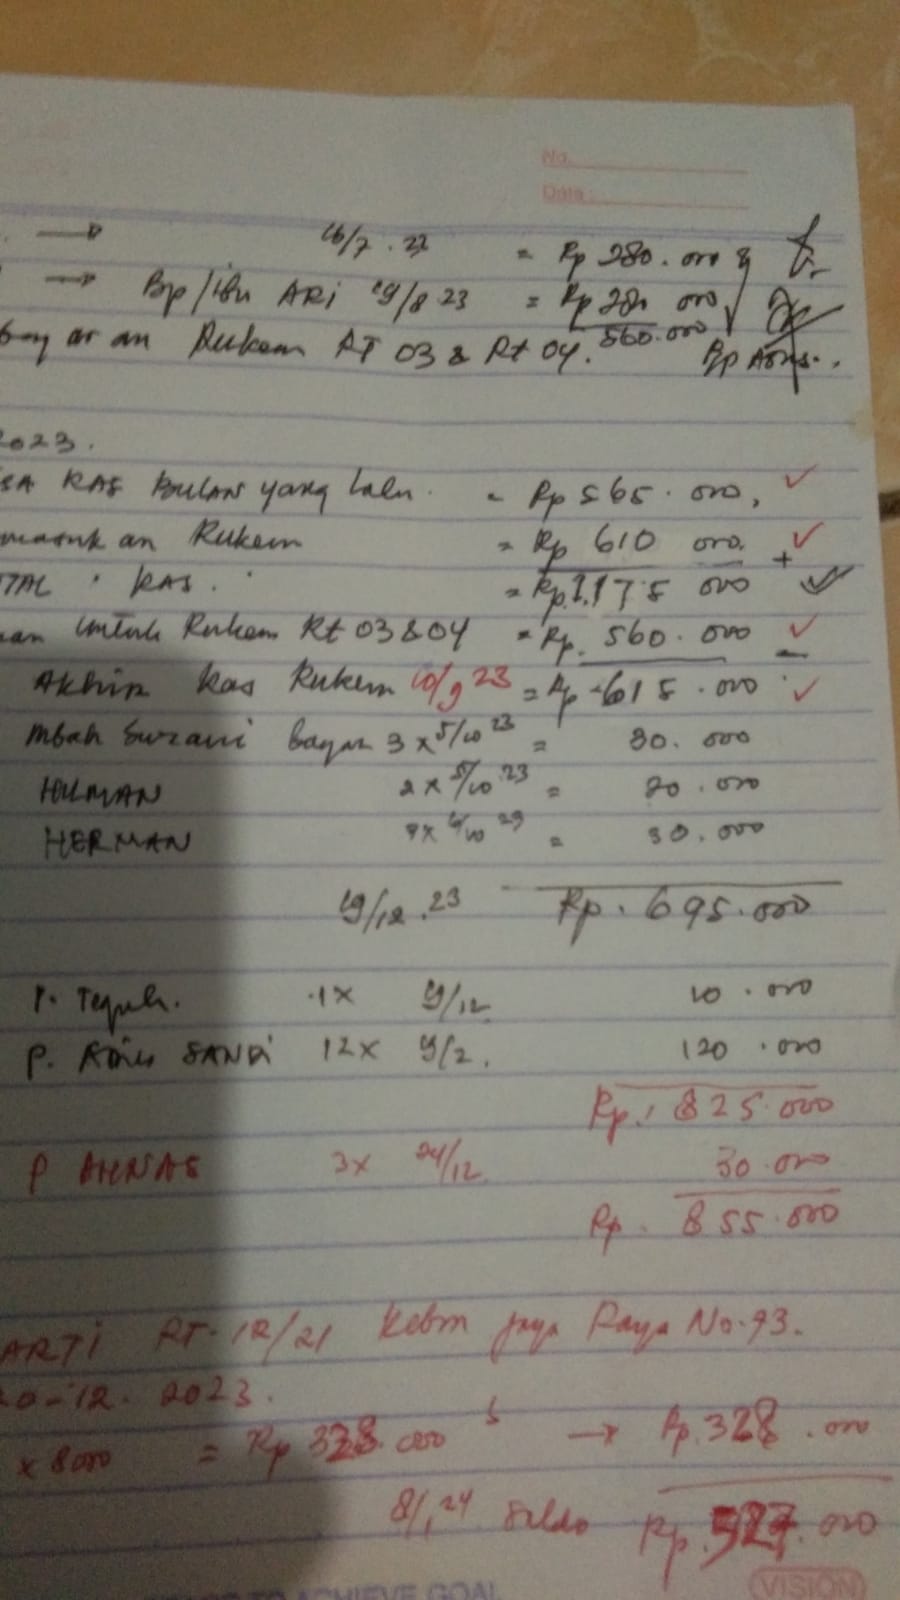 No.
Date :
= Rp 280.000
→ Bp/ibu ARi 19/8 23 = Rp 280 000
560.000
Rukem RT 03 & Rt 04.
2023.
KAS BULAN yang lalu. = Rp 565.000,
Rukem = Rp 610 000. +
KAS. = Rp.1.175 000
untuk Rukem Rt 03&04 = Rp. 560.000 -
Akhir kas Rukem 10/9 23 = Rp 615.000
Mbah bayar 3 x 5/10 23 = 30.000
HILMAN 2 x 5/10 23 = 20.000
HERMAN = 30.000
19/12.23 Rp. 695.000
P. Teguh. 1x 9/12 10.000
P. SANDi 12x 120.000
Rp. 825.000
P AHNAS 3x 24/12 30.000
Rp. 855.000
ARTi RT. 12/21 Kebon jaya Raya No.93.
-12.2023.
x 8000 = Rp 328.000 → Rp.328.000
8/1 24 Saldo Rp. 527.000
TO ACHIEVE GOAL
VISION